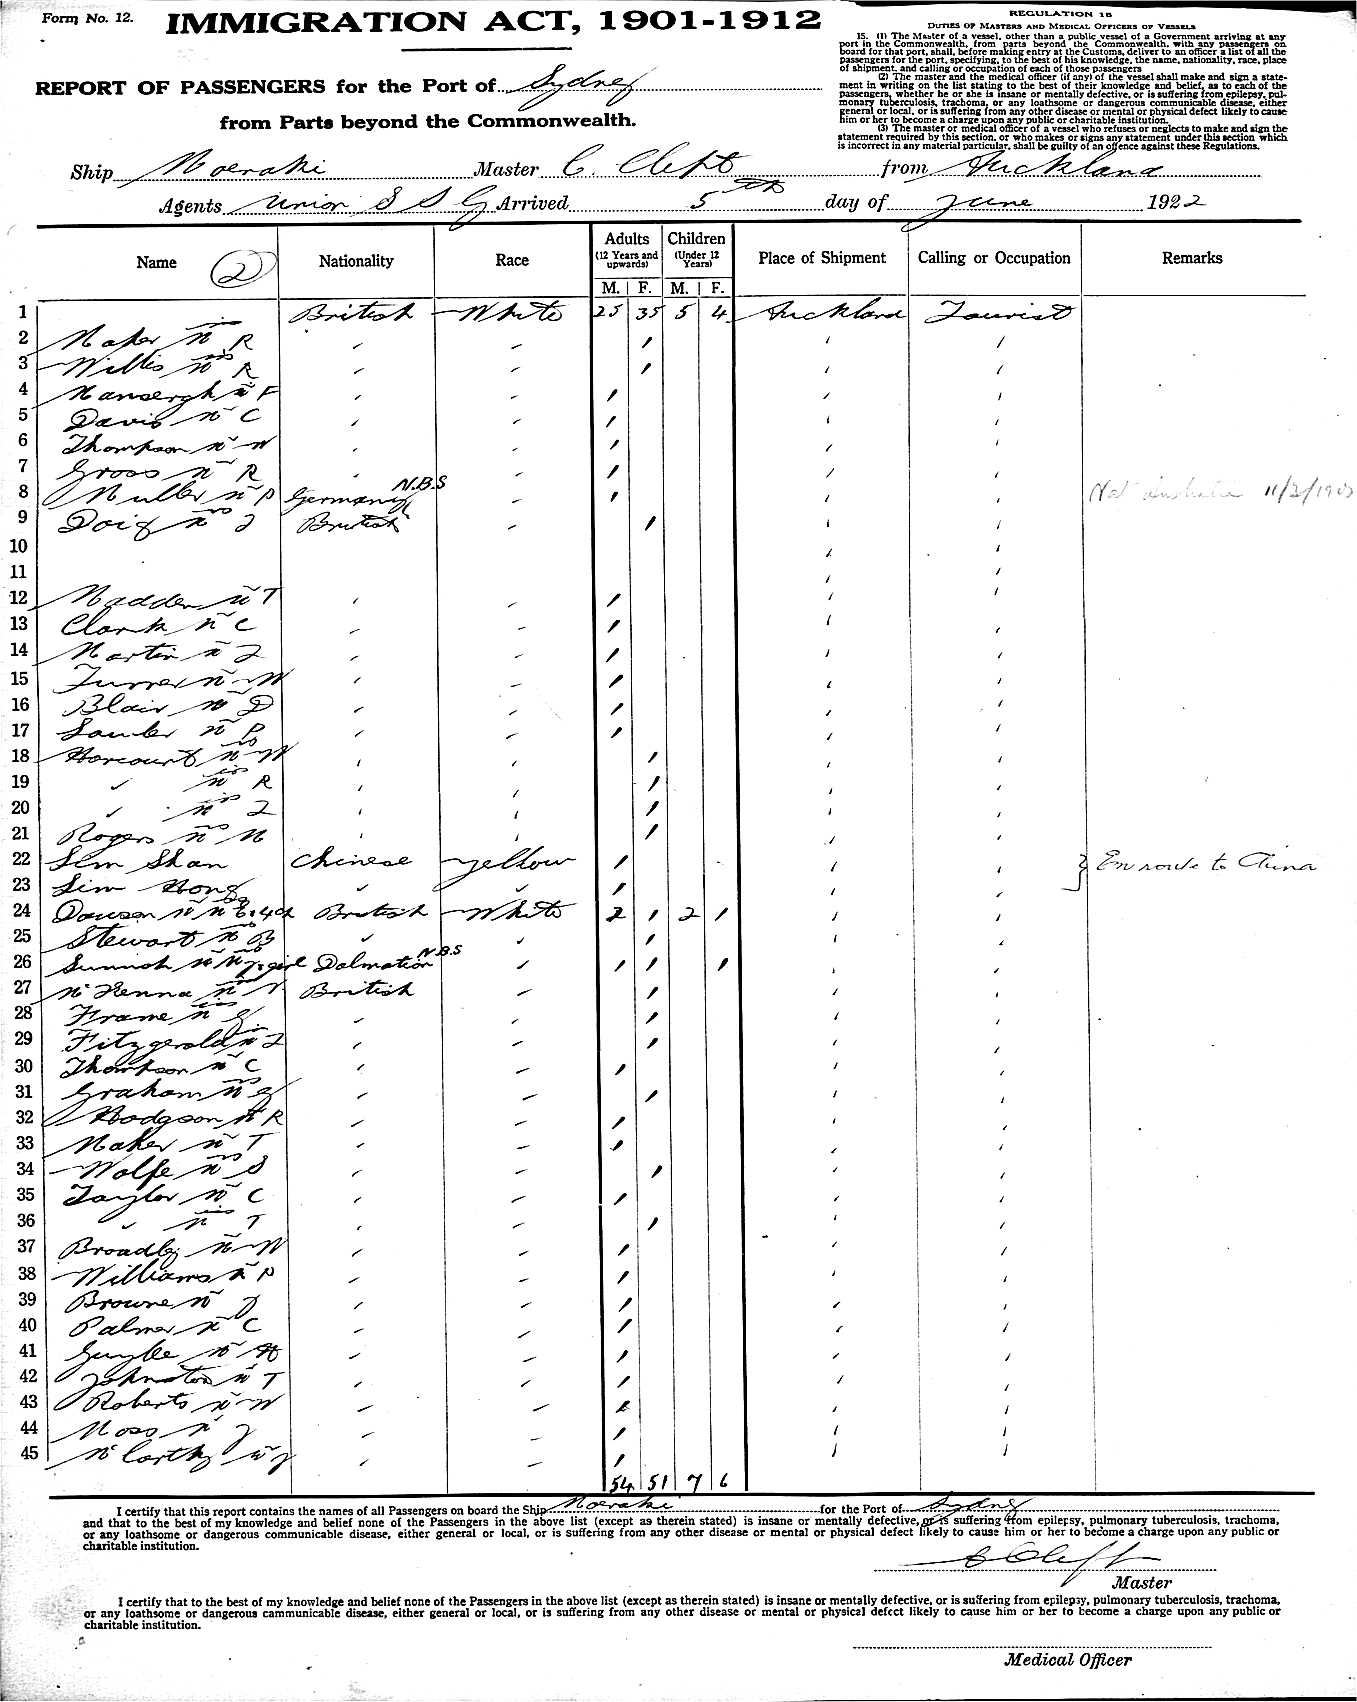 Form No. 12.
IMMIGRATION ACT, 1901-1912
REPORT OF PASSENGERS for the Port of Sydney
from Parts beyond the Commonwealth.
REGULATION 15
DUTIES OF MASTERS AND MEDICAL OFFICERS OF VESSELS
15. (1) The Master of a vessel, other than a public vessel of a Government arriving at any
port in the Commonwealth, from parts beyond the Commonwealth, with any passengers on
board for that port, shall, before making entry at the Customs, deliver to an officer a list of all the
passengers for the port, specifying, to the best of his knowledge, the name, nationality, race, place
of shipment, and calling or occupation of each of those passengers
(2) The master and the medical officer (if any) of the vessel shall make and sign a state-
ment in writing on the list stating to the best of their knowledge and belief, as to each of the
passengers, whether he or she is insane or mentally defective, or is suffering from epilepsy, pul-
monary tuberculosis, trachoma, or any loathsome or dangerous communicable disease, either
general or local, or is suffering from any other disease or mental or physical defect likely to cause
him or her to become a charge upon any public or charitable institution.
(3) The master or medical officer of a vessel who refuses or neglects to make and sign the
statement required by this section, or who makes or signs any statement under this section which
is incorrect in any material particular, shall be guilty of an offence against these Regulations.
Ship Moeraki Master C. Clift from Auckland
Agents Union S S Co Arrived 5th day of June 1922
Name 2 Nationality Race Adults (12 Years and upwards) Children (Under 12 Years) Place of Shipment Calling or Occupation Remarks
M. F. M. F.
1 British White 25 35 5 4 Auckland Tourist
2 Maher Mrs R
3 Willis Mrs R
4 Mansergh Mr F
5 Davis Mr C
6 Thompson Mr W
7 Gross Mr R
8 Muller Mr P Germany N.B.S Nat Australia 11/2/
9 Doig Mrs J British
10
11
12 Madden Mr T
13 Clark Mr C
14 Martin Mr J
15 Turner Mr W
16 Blair Mr D
17 Mr P
18 Harcourt Mrs W
19 " Miss R
20 " Miss J
21 Rogers Mrs M
22 Sem Shan Chinese Yellow } En route to China
23 Lim Hong
24 Dawson Mr M & 4 ch British White 2 1 2 1
25 Stewart B
26 Mr Mrs & girl Dalmation N.B.S
27 McKenna British
28 Frame Miss G
29 Fitzgerald J
30 Thompson Mr C
31 Graham Mrs G
32 Hodgson Mr R
33 Maher Mr T
34 Wolfe Mrs S
35 Taylor Mr C
36 " Miss T
37 Broadley Mr W
38 Williams Mr P
39 Browne Mr J
40 Palmer Mr C
41 Mr H
42 Johnston Mr T
43 Roberts Mr W
44 Moss Mr J
45 McCarthy Mr J
54 51 7 6
I certify that this report contains the names of all Passengers on board the Ship Moeraki for the Port of Sydney
and that to the best of my knowledge and belief none of the Passengers in the above list (except as therein stated) is insane or mentally defective, or is suffering from epilepsy, pulmonary tuberculosis, trachoma,
or any loathsome or dangerous communicable disease, either general or local, or is suffering from any other disease or mental or physical defect likely to cause him or her to become a charge upon any public or
charitable institution.
C Clift
Master
I certify that to the best of my knowledge and belief none of the Passengers in the above list (except as therein stated) is insane or mentally defective, or is suffering from epilepsy, pulmonary tuberculosis, trachoma,
or any loathsome or dangerous cammunicable disease, either general or local, or is suffering from any other disease or mental or physical defect likely to cause him or her to become a charge upon any public or
charitable institution.
Medical Officer